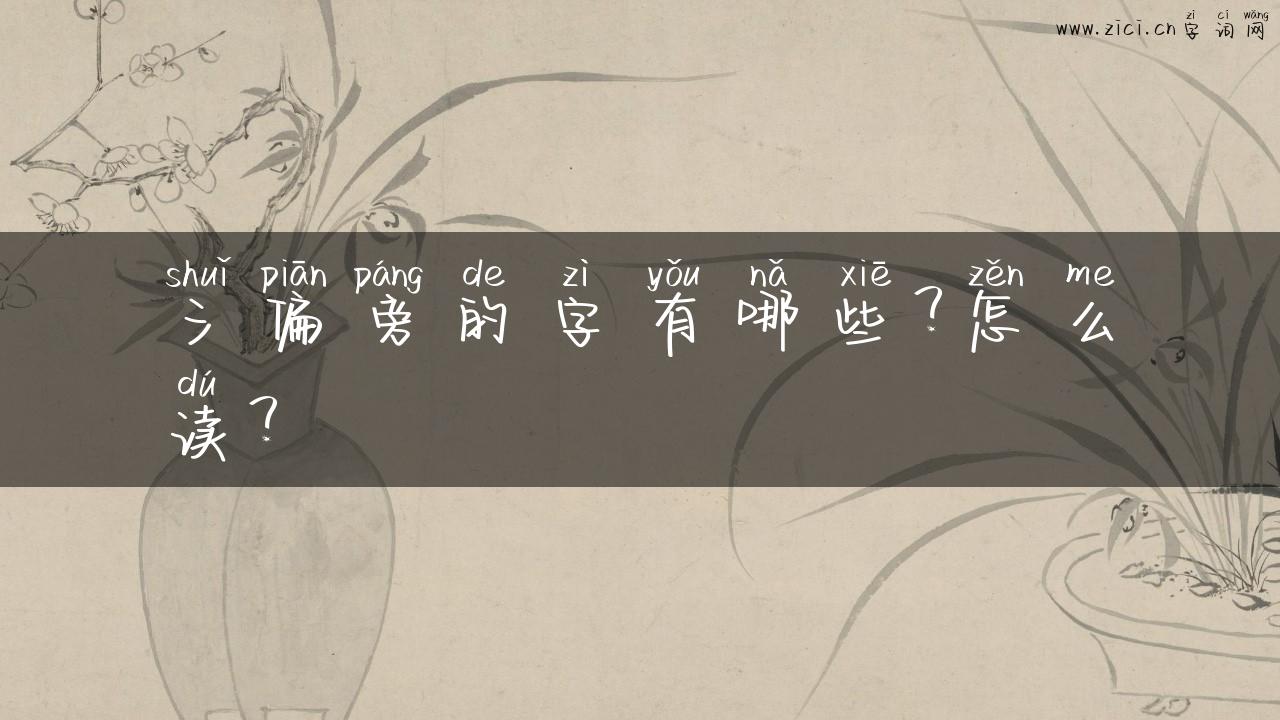 www.zici.cn zì cí wǎng
字词网
shuǐ piān páng de zì yǒu nǎ xiē zěn me
氵偏旁的字有哪些？怎么
dú
读？